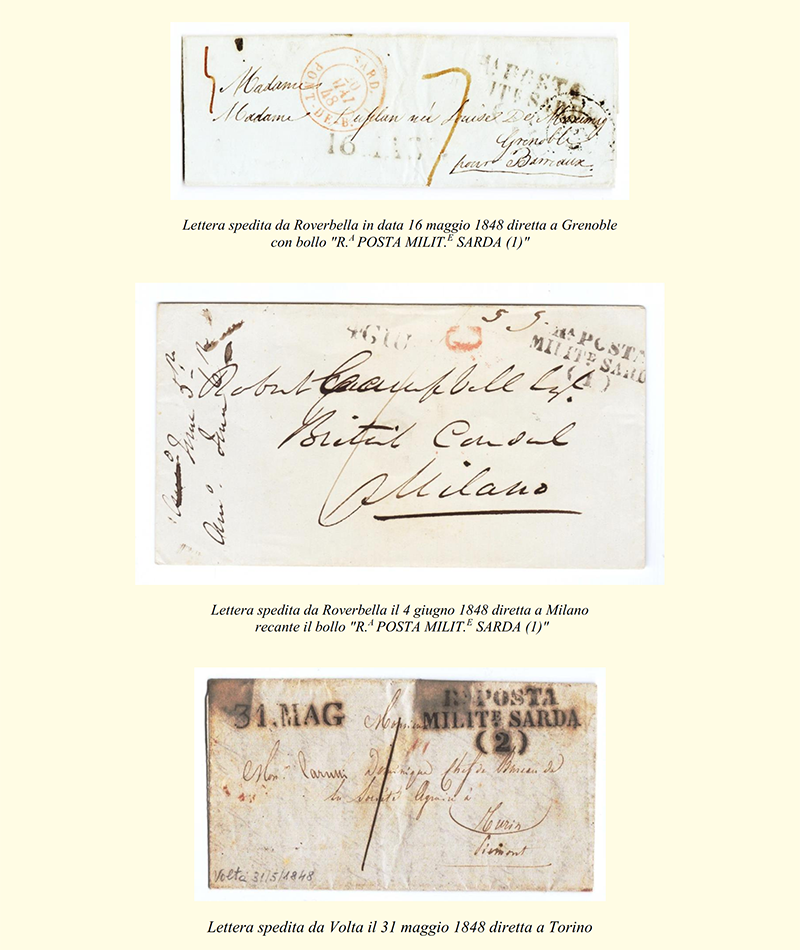 Madame
SARD.
PONT-DE-B.
20
MAI
48
7
Rª POSTA
ITE SARD
Madame
née Louise De
Grenoble
pour Barraux
16 MAG
Lettera spedita da Roverbella in data 16 maggio 1848 diretta a Grenoble
con bollo "R.A POSTA MILIT.E SARDA (1)"
4 GIU
C
5 5.
Rª POSTA
MILITE SARD
(1)
Robert Campbell Esq.
British Consul
Milano
June
Lettera spedita da Roverbella il 4 giugno 1848 diretta a Milano
recante il bollo "R.A POSTA MILIT.E SARDA (1)"
31.MAG
Rª POSTA
MILITE SARDA
(2)
Monsieur
Dominique Chef de Bureau de
la Société Agraria à
Turin
Piémont
Volta 31/5/1848
Lettera spedita da Volta il 31 maggio 1848 diretta a Torino